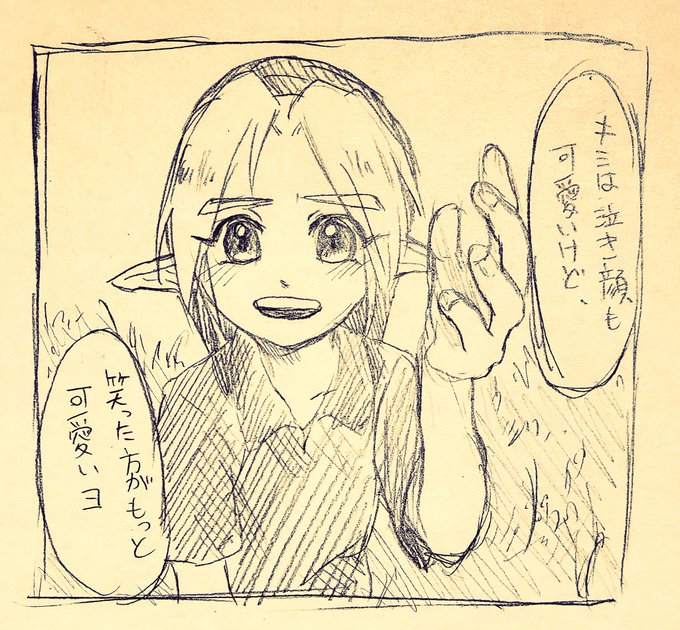 キミは泣き顔も
可愛いけど、
笑った方がもっと
可愛いヨ